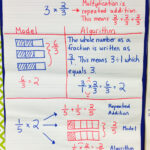 3 × 2/3 → Multiplication is
repeated addition.
This means 2/3 + 2/3 + 2/3
Model
Algorithm
The whole number as a
fraction is written as
3/1. This means 3÷1 which
equals 3.
6/3 = 2
3/1 × 2/3 = 6/3 = 2
1/5 × 2
1/5 + 1/5 = 2/5
Repeated
Addition
Model
Algorithm